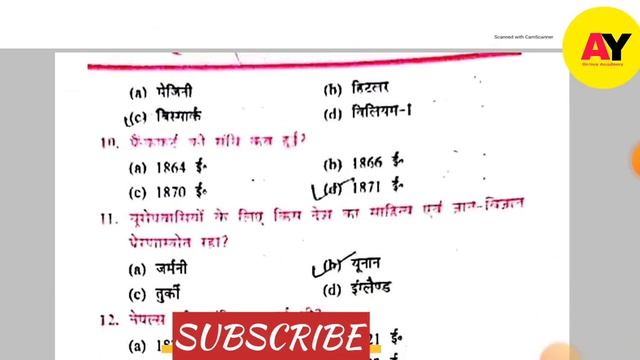 Scanned with CamScanner
AY
Online Academy
(a) मेजिनी (b) हिटलर
(c) बिस्मार्क (d) विलियम-I
10. फ्रैंकफर्ट की संधि कब हुई?
(a) 1864 ई॰ (b) 1866 ई॰
(c) 1870 ई॰ (d) 1871 ई॰
11. यूरोपवासियों के लिए किस देश का साहित्य एवं ज्ञान-विज्ञान
प्रेरणास्रोत रहा?
(a) जर्मनी (b) यूनान
(c) तुर्की (d) इंग्लैण्ड
12. नेपल्स
(a) 21 ई॰
SUBSCRIBE